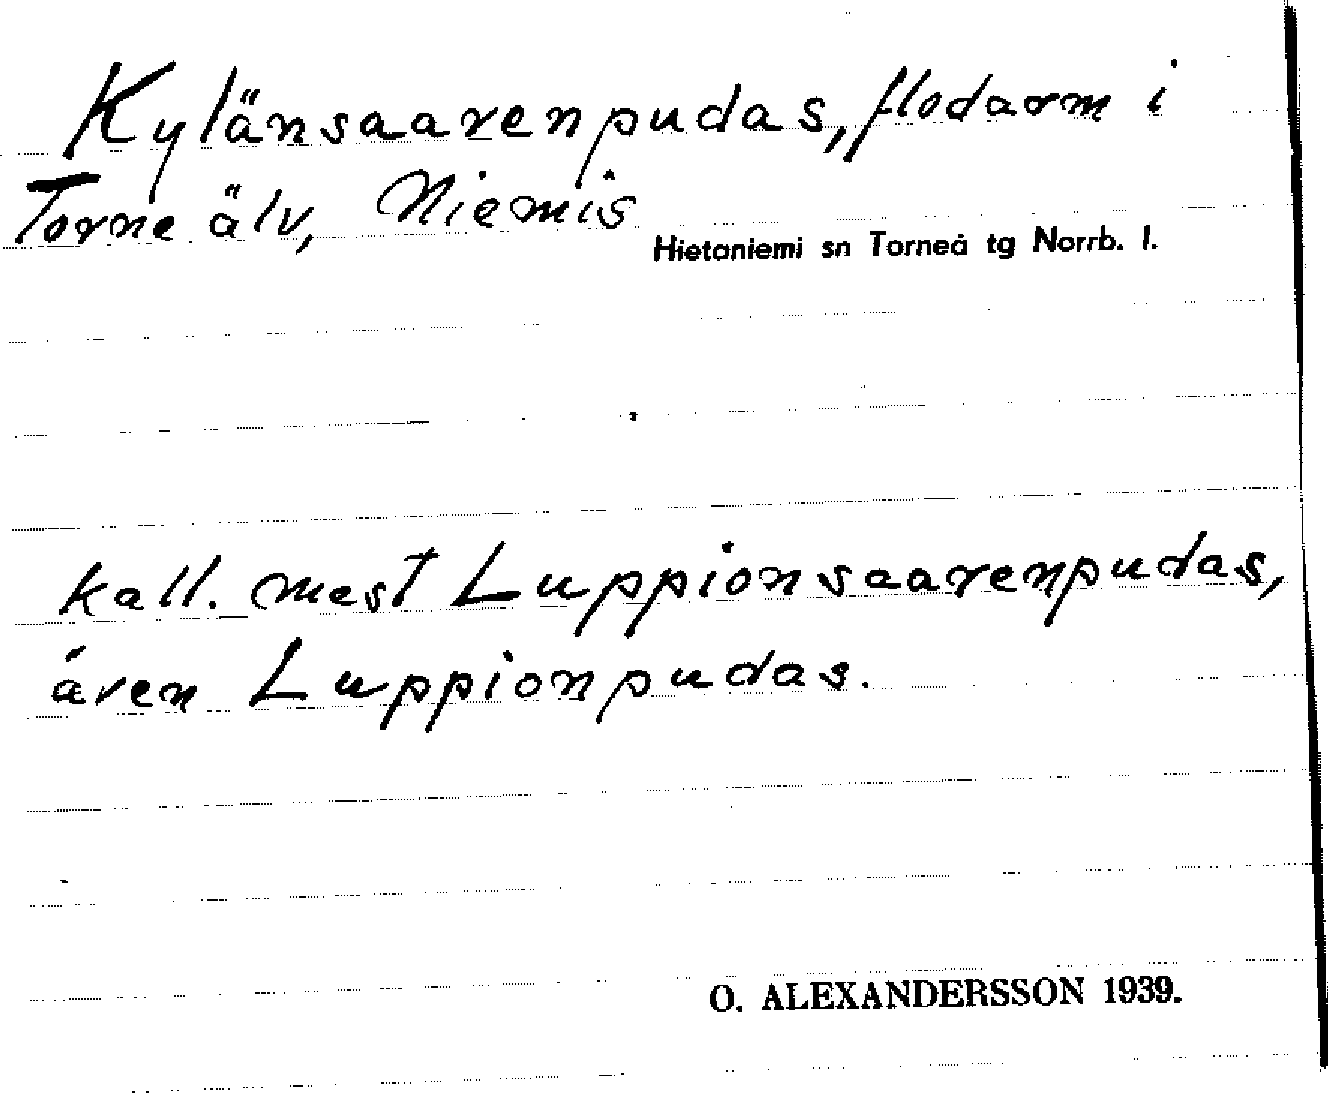 Kylänsaarenpudas, flodarm i
Torne älv, Niemis
Hietaniemi sn Torneå tg Norrb. l.
kall. mest Luppionsaarenpudas,
även Luppionpudas.
O. ALEXANDERSSON 1939.